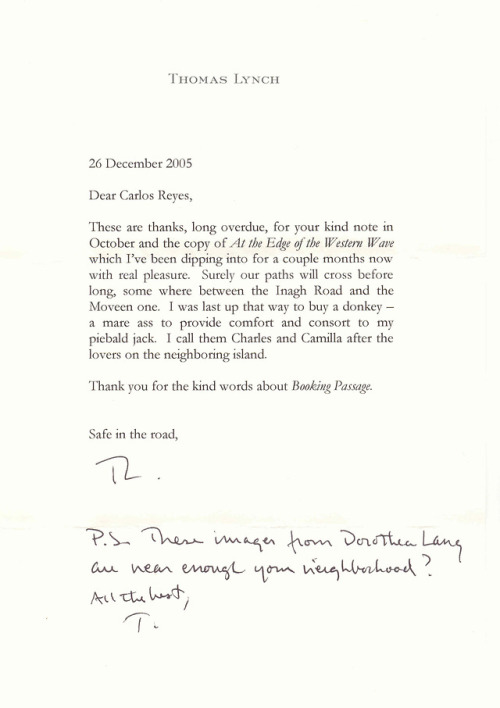 THOMAS LYNCH
26 December 2005
Dear Carlos Reyes,
These are thanks, long overdue, for your kind note in
October and the copy of At the Edge of the Western Wave
which I've been dipping into for a couple months now
with real pleasure. Surely our paths will cross before
long, some where between the Inagh Road and the
Moveen one. I was last up that way to buy a donkey –
a mare ass to provide comfort and consort to my
piebald jack. I call them Charles and Camilla after the
lovers on the neighboring island.
Thank you for the kind words about Booking Passage.
Safe in the road,
TL.
P.S. These images from Dorothea Lang
are near enough your neighborhood?
All the best,
T.